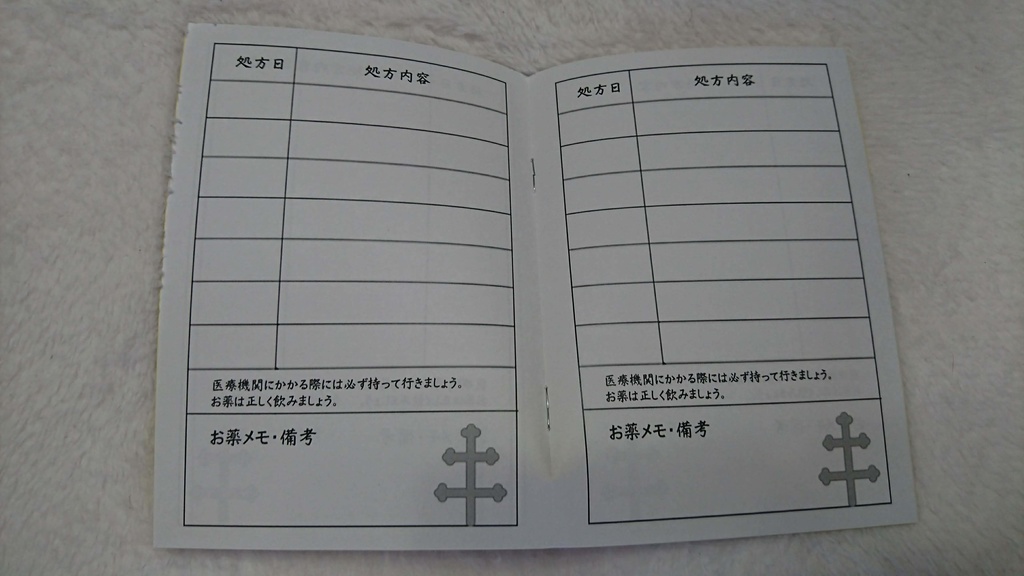 処方日 処方内容
医療機関にかかる際には必ず持って行きましょう。
お薬は正しく飲みましょう。
お薬メモ・備考
処方日 処方内容
医療機関にかかる際には必ず持って行きましょう。
お薬は正しく飲みましょう。
お薬メモ・備考